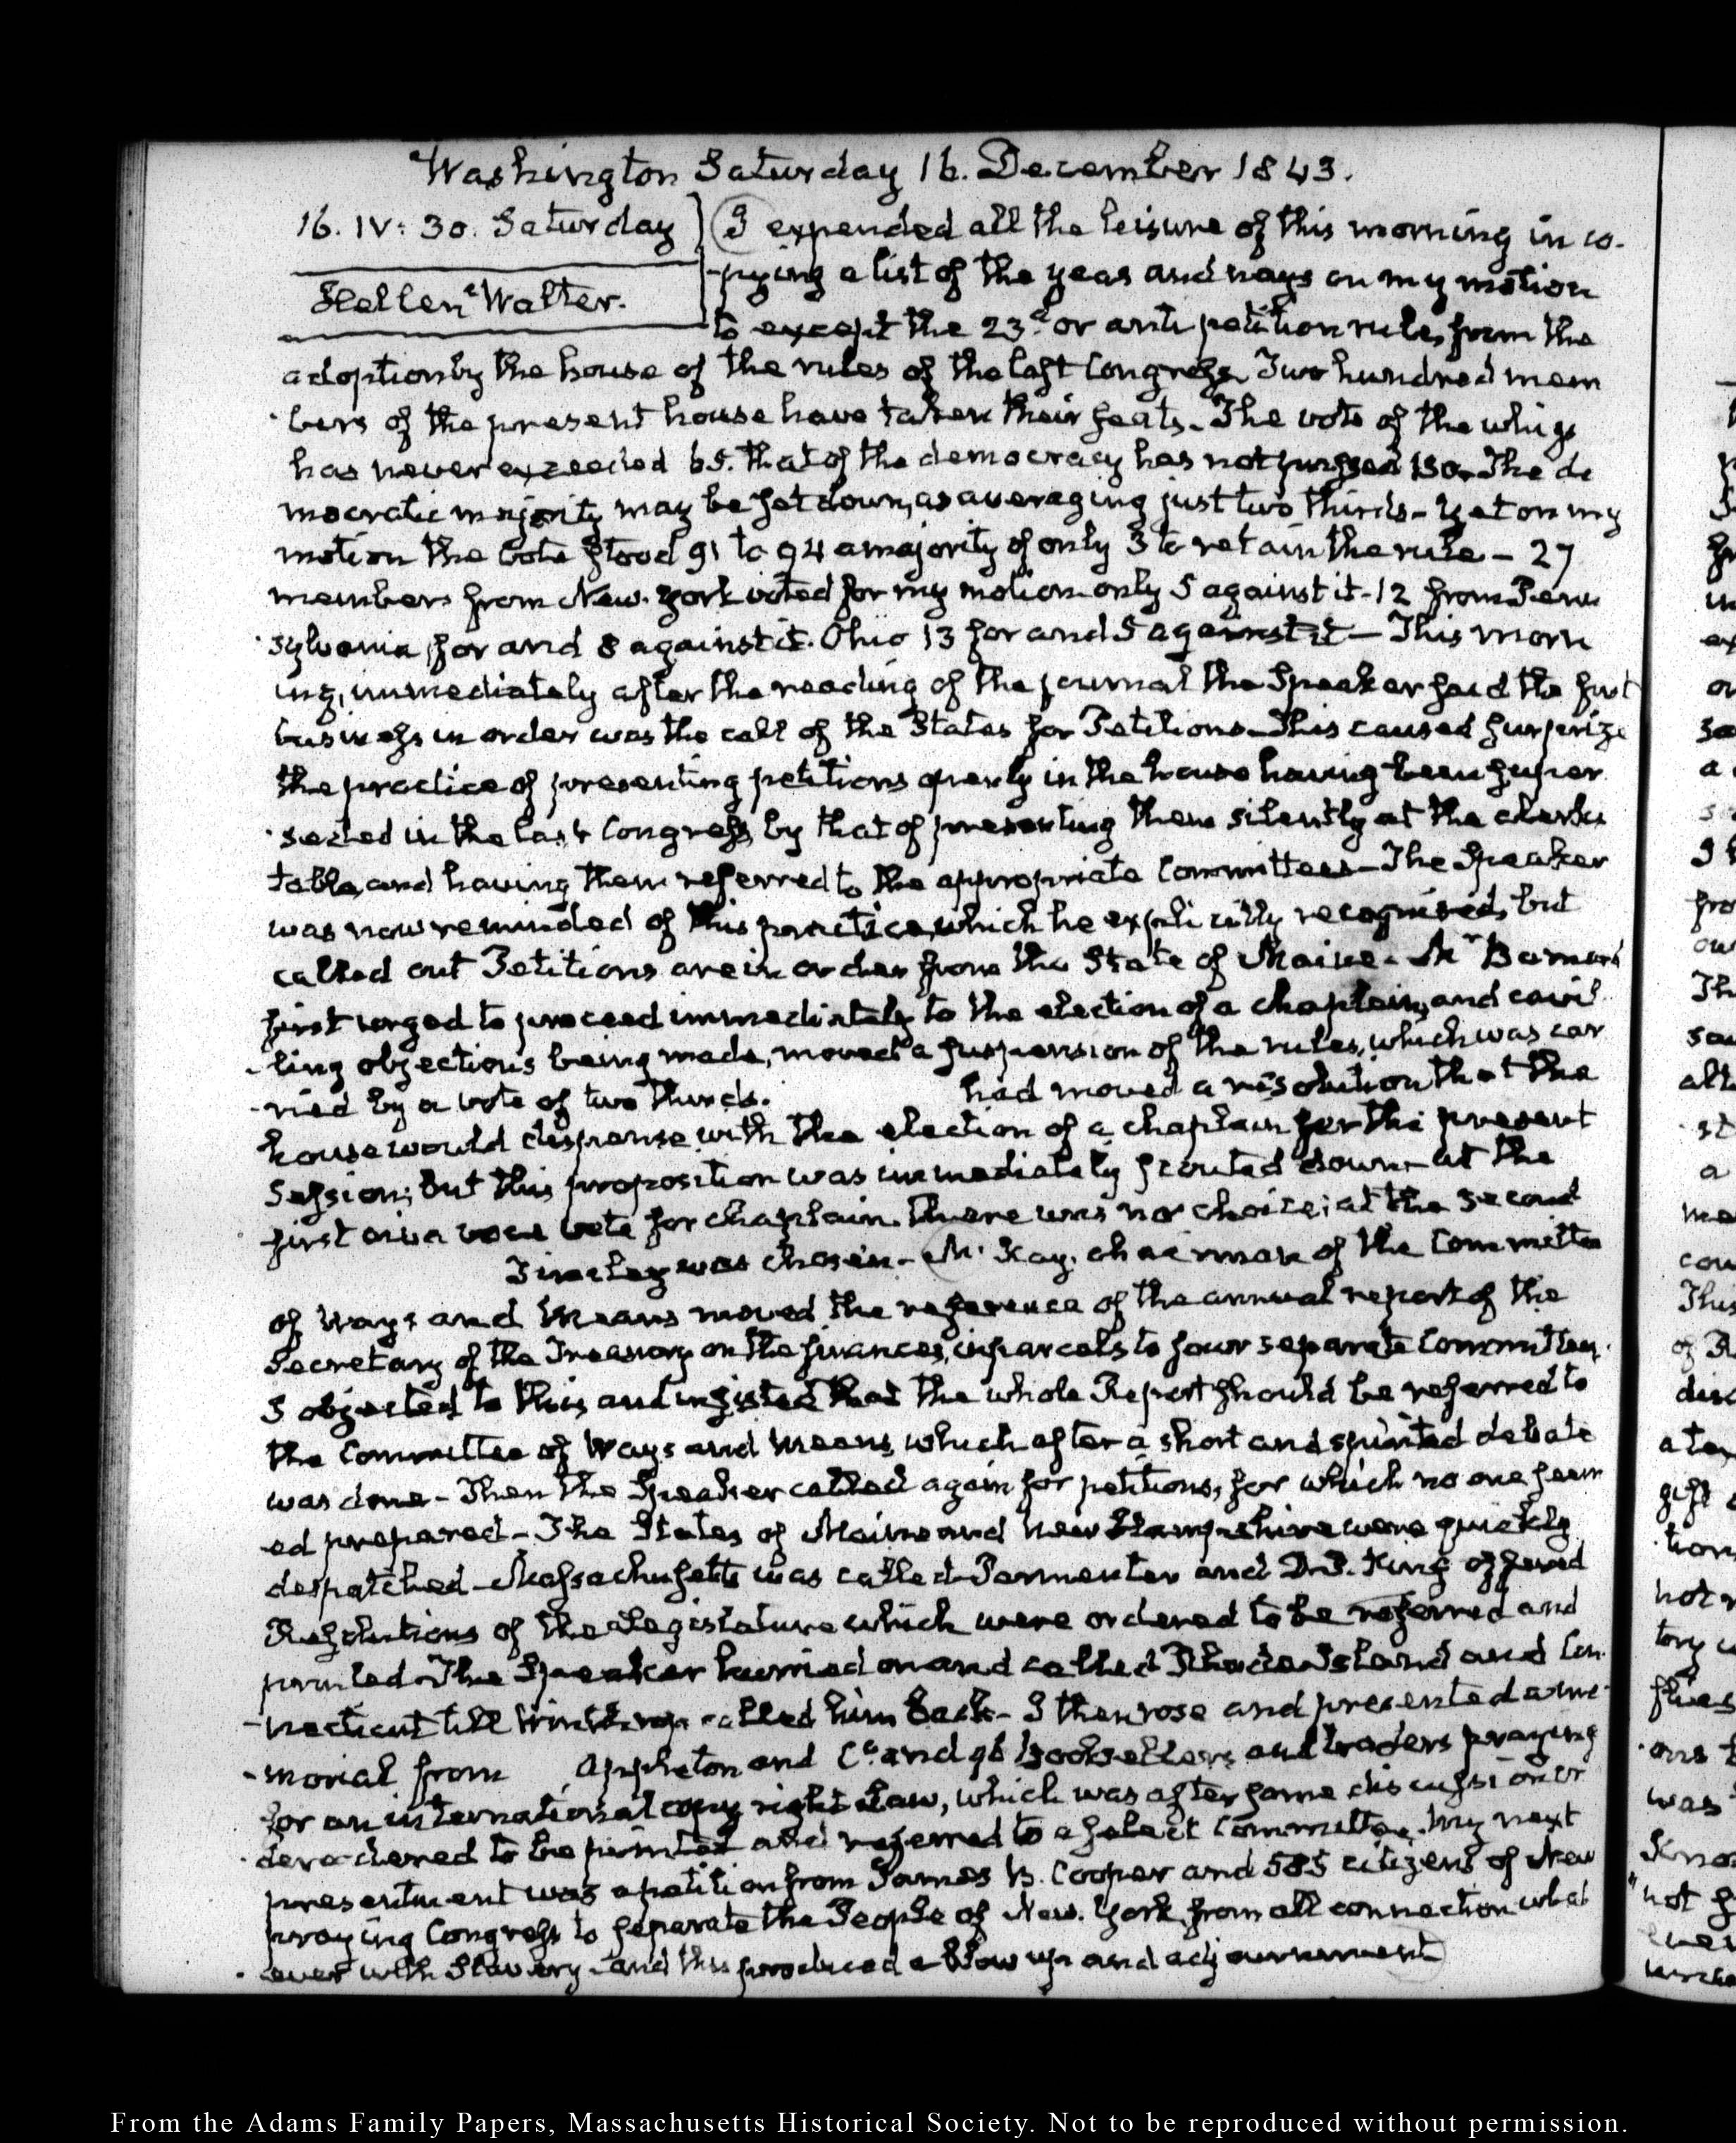 Washington Saturday 16. December 1843.
16. IV: 30. Saturday
Hellen Walter.
I expended all the leisure of this morning in co-
-pying a list of the yeas and nays on my motion
to except the 23.d or anti petition rule, from the
adoption by the house of the rules of the last Congress. Two hundred mem
-bers of the present house have taken their seats. The vote of the whigs
has never exceeded 65. that of the democracy has not passed 130. The de
mocratic majority may be set down, as averaging just two thirds - yet on my
motion the vote stood 91 to 94 a majority of only 3 to retain the rule - 27
members from New-York voted for my motion only 5 against it - 12 from Penn
-sylvania for and 8 against it. Ohio 13 for and 5 against it - This morn
ing, immediately after the reading of the journal the Speaker said the first
business in order was the call of the States for Petitions - This caused surprize
the practice of presenting petitions openly in the house having been super
-seded in the last Congress, by that of presenting them silently at the clerks
table, and having them referred to the appropriate Committees - The Speaker
was now reminded of this practice, which he explicitly recognised, but
called out Petitions are in order from the State of Maine - Mr Barnard
first urged to proceed immediately to the election of a chaplain, and cavil
-ling objections being made, moved a suspension of the rules, which was car
-ried by a vote of two thirds. had moved a resolution that the
house would dispense with the election of a chaplain for the present
Session; but this proposition was immediately scouted down - at the
first viva voce vote for chaplain. there was no choice; at the second
Tinsley was chosen - Mc Kay, chairman of the Committee
of Ways and Means moved the reference of the annual report of the
Secretary of the Treasury on the finances, in parcels to four separate Committees.
I objected to this and insisted that the whole Report should be referred to
the Committee of Ways and Means, which after a short and spirited debate
was done - Then the Speaker called again for petitions, for which no one seem
ed prepared - The States of Maine and New Hampshire were quickly
despatched - Massachusetts was called - Parmenter and D. P. King offered
Resolutions of the Legislature which were ordered to be referred and
printed - The Speaker hurried on and called Rhode Island and Con
-necticut till Winthrop called him back - I then rose and presented a me
-morial from Appleton and Co. and 96 booksellers and traders praying
for an international copy right Law, which was after some discussion or
-dered to be printed and referred to a select Committee. My next
presentment was a petition from James B. Cooper and 585 citizens of New
praying Congress to separate the People of New-York from all connection what
-ever with Slavery - and this produced a blow up and adjournment
From the Adams Family Papers, Massachusetts Historical Society. Not to be reproduced without permission.